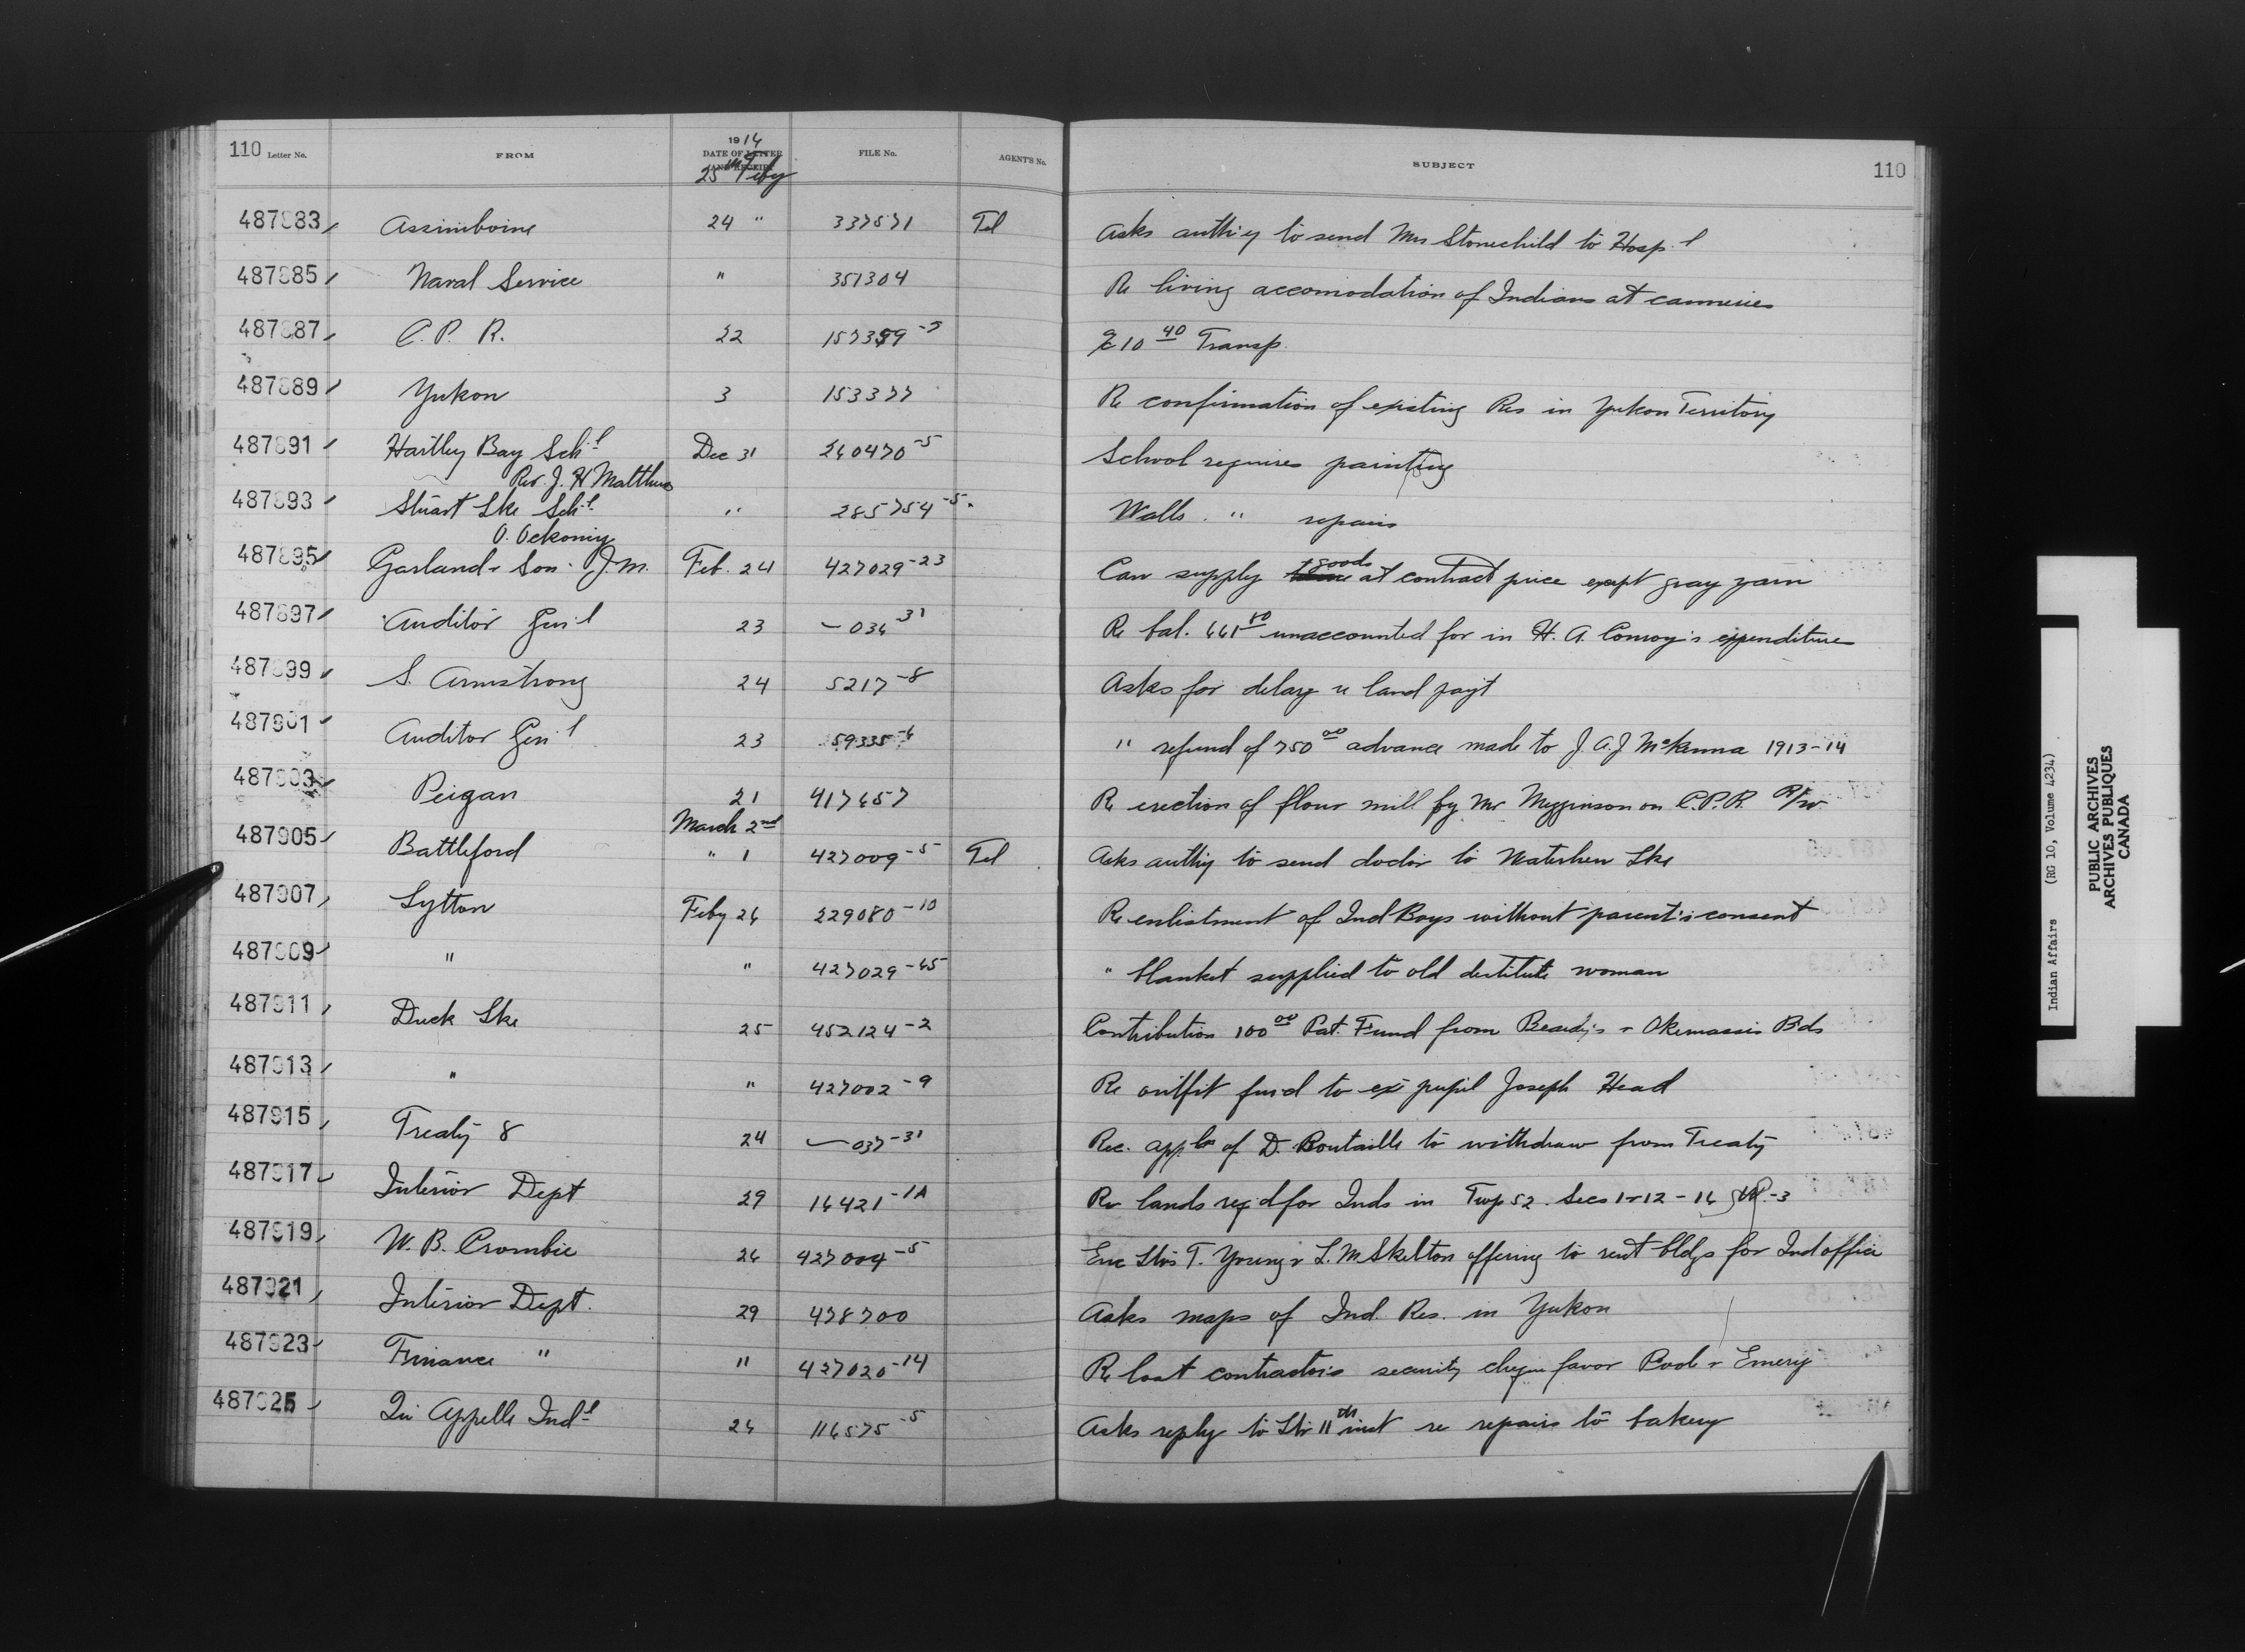 110 Letter No. FROM 1914 DATE OF LETTER AND RECEIPT FILE No. AGENT'S No. SUBJECT 110
25th Feby
487883 Assiniboine 24 " 337571 Tel Asks auth'y to send Mrs Stonechild to Hosp.l
487885 Naval Service " 351304 Re living accomodation of Indians at canneries
487887 C. P. R. 22 157389-5 10 40 Transp.
487889 Yukon 3 153377 Re confirmation of existing Res in Yukon Territory
487891 Hartley Bay Sch.l Dec 31 260470-5 School requires painting
Rev. J. H Matthews
487893 Stuart Lke Sch.l " 285754-5 Walls " repairs
487895 Garland & Son J. M. Feb. 24 427029-23 Can supply goods at contract price except gray yarn
487897 Auditor Gen'l 23 — 036 31 Re bal. unaccounted for in H. A. Conroy's expenditure
487899 S. Armstrong 24 5217-8 Asks for delay re land pay't
487901 Auditor Gen'l 23 59335-6 " refund of 750 00 advance made to J. A. J McKenna 1913-14
487903 Peigan 21 417657 Re erection of flour mill by Mr Megginson on C.P.R. R/w
March 2nd
487905 Battleford " 1 427009-5 Tel Asks auth'y to send doctor to Waterhen Lke
487907 Lytton Feby 26 229080-10 Re enlistment of Ind Boys without parent's consent
487909 " " 427029-65 " blanket supplied to old destitute woman
487911 Duck Lke 25 452124-2 Contribution 100 00 Pat. Fund from Beardy's & Okemassis Bds
487913 " " 427002-9 Re outfit fur'd to ex pupil Joseph Head
487915 Treaty 8 24 — 037-31 Rec. app'ln of D. Boutaille to withdraw from Treaty
487917 Interior Dept 29 16421-1A Re lands req'd for Inds in Twp 52. Secs 1 & 12 - 16 -3
487919 W. B. Crombie 26 427004-5 Enc Ltrs T. Young & L. M Skelton offering to rent bldgs for Ind office
487921 Interior Dept. 29 478700 Asks maps of Ind. Res. in Yukon
487923 Finance " " 427020-14 Re lost contractor's security cheque favor Pook & Emery
487925 Qu'Appelle Ind.l 26 116575-5 Asks reply to Ltr 11th inst re repairs to bakery
Indian Affairs (RG 10, Volume 4234)
PUBLIC ARCHIVES
ARCHIVES PUBLIQUES
CANADA